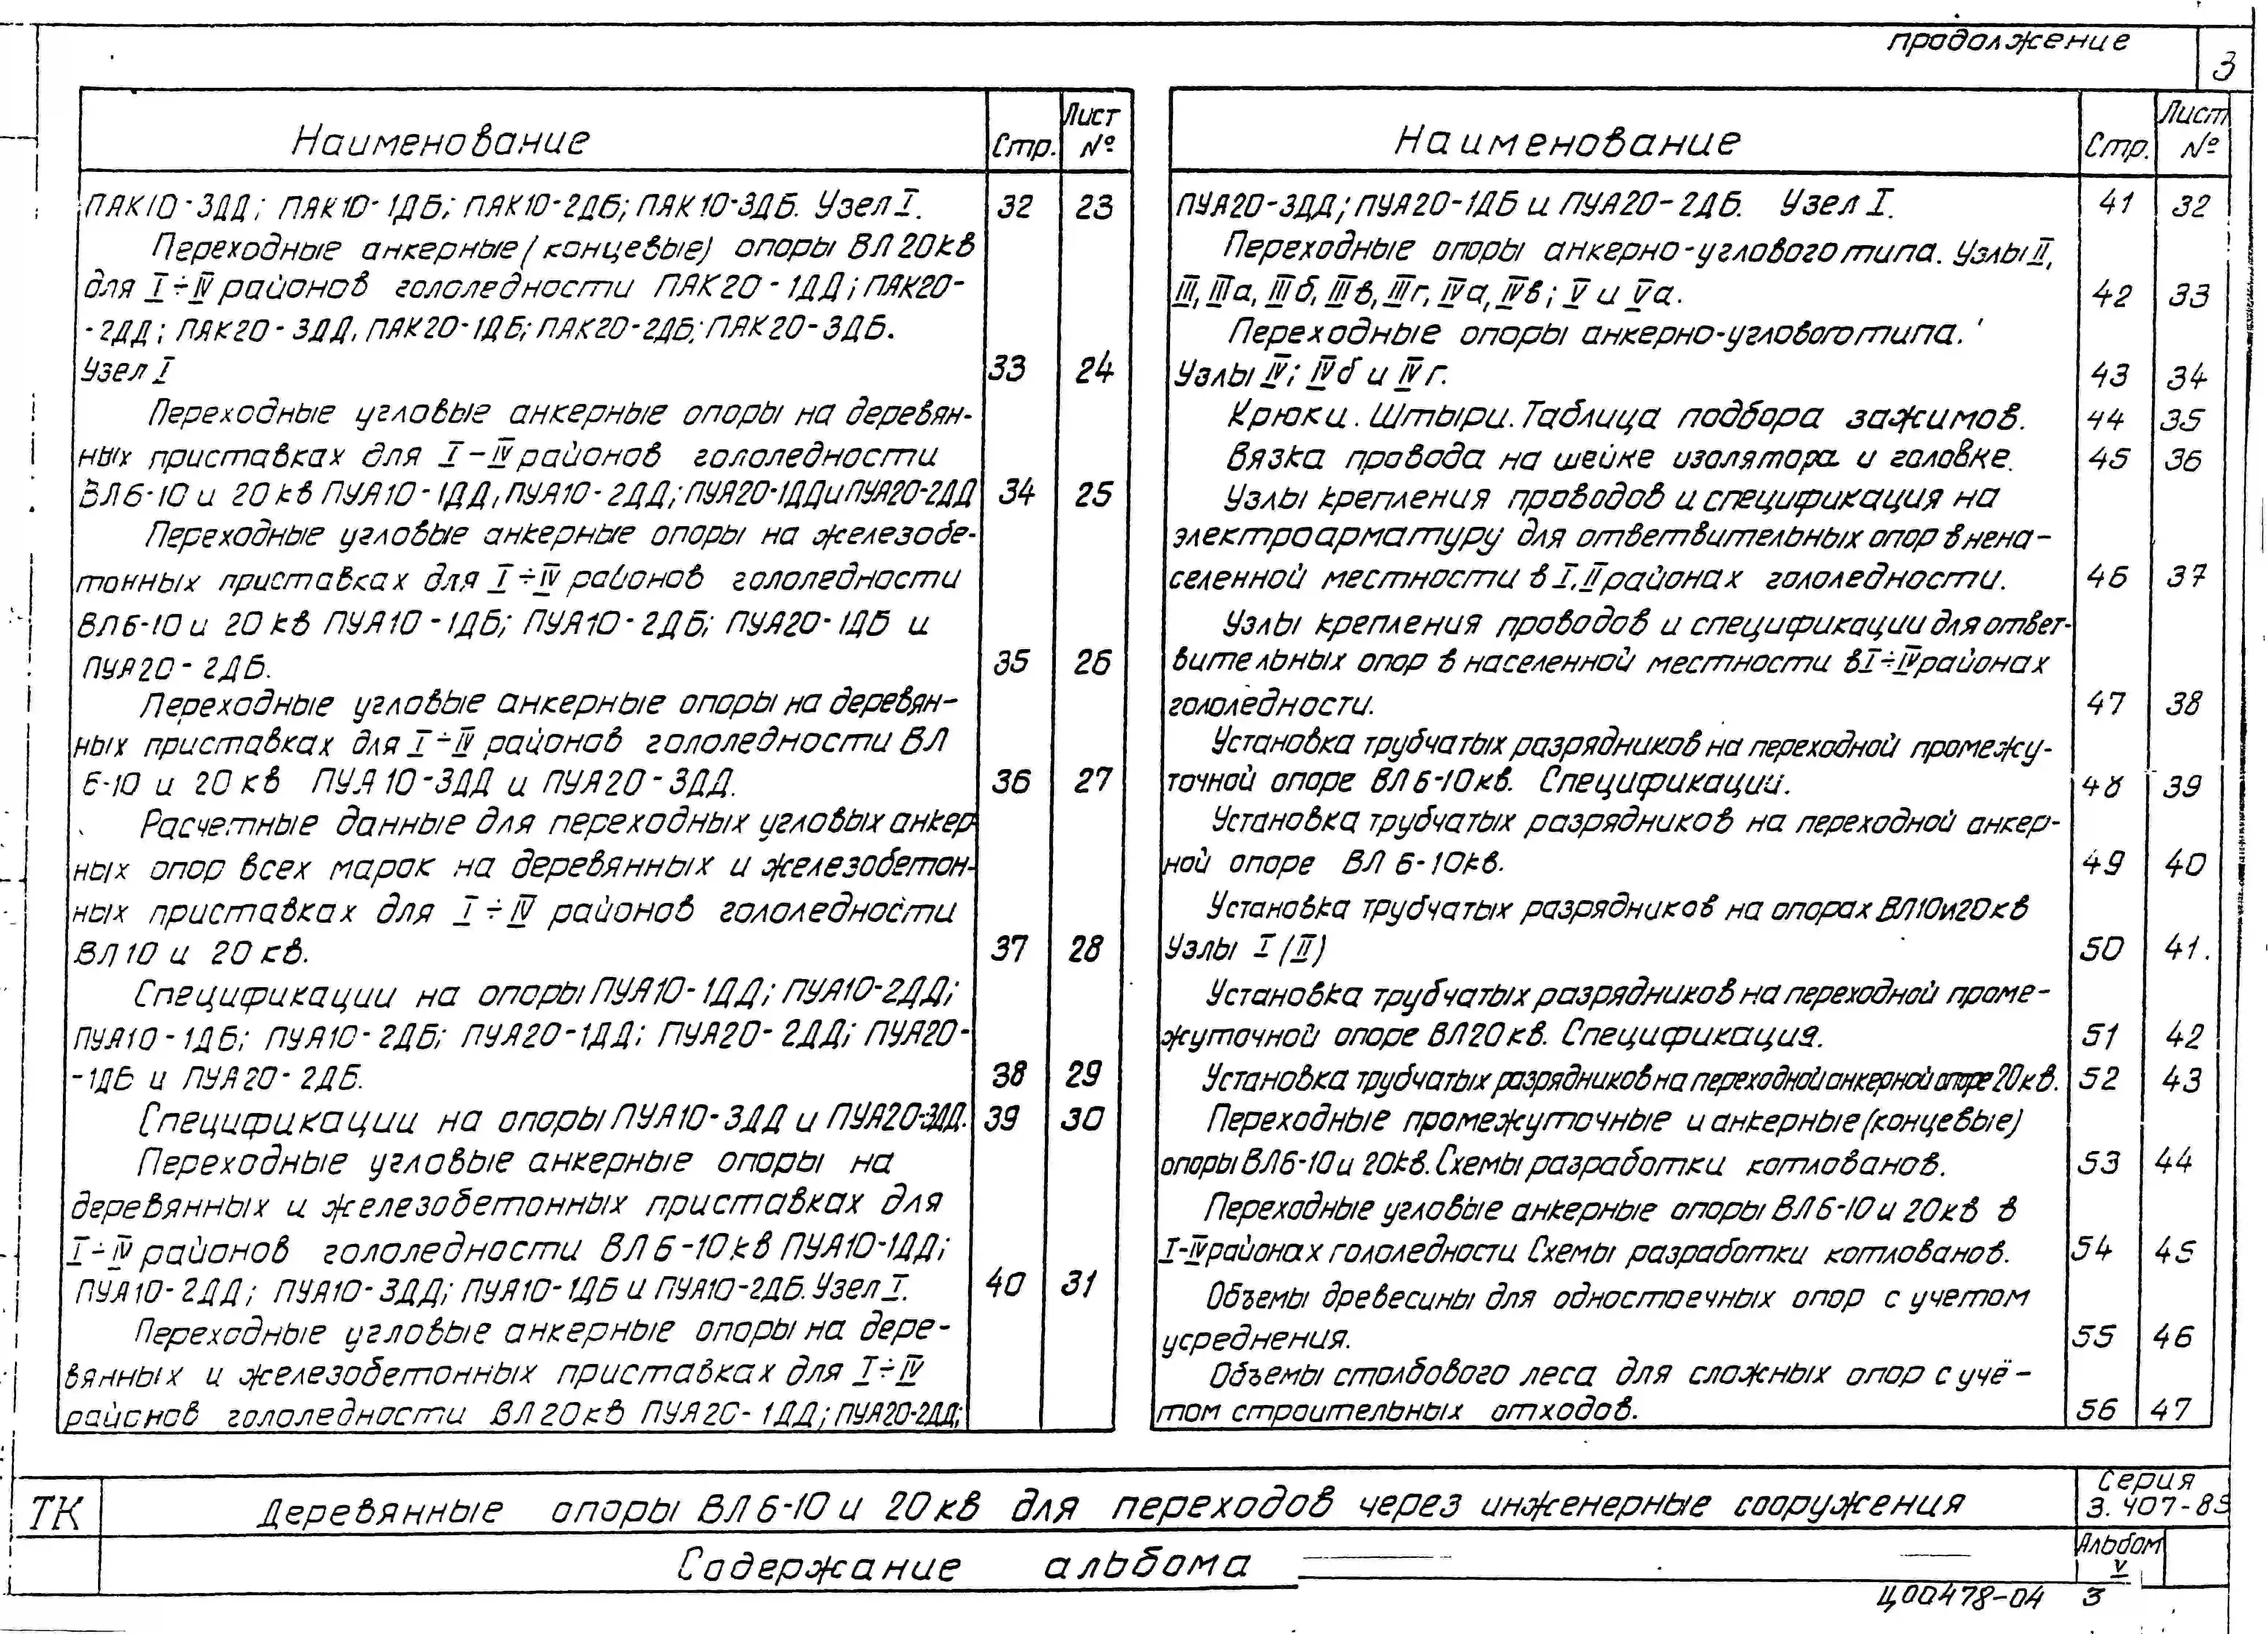 продолжение
3
Наименование Стр. Лист №
ПАК10-3ДД; ПАК10-1ДБ; ПАК10-2ДБ; ПАК10-3ДБ. Узел I. 32 23
Переходные анкерные (концевые) опоры ВЛ 20кв
для I÷IV районов гололедности ПАК20-1ДД; ПАК20-
-2ДД; ПАК20-3ДД, ПАК20-1ДБ; ПАК20-2ДБ; ПАК20-3ДБ.
Узел I 33 24
Переходные угловые анкерные опоры на деревян-
ных приставках для I-IV районов гололедности
ВЛ6-10 и 20кв ПУА10-1ДД, ПУА10-2ДД; ПУА20-1ДД и ПУА20-2ДД 34 25
Переходные угловые анкерные опоры на железобе-
тонных приставках для I÷IV районов гололедности
ВЛ6-10 и 20кв ПУА10-1ДБ; ПУА10-2ДБ; ПУА20-1ДБ и
ПУА20-2ДБ. 35 26
Переходные угловые анкерные опоры на деревян-
ных приставках для I÷IV районов гололедности ВЛ
6-10 и 20кв ПУА10-3ДД и ПУА20-3ДД. 36 27
Расчетные данные для переходных угловых анкер
ных опор всех марок на деревянных и железобетон-
ных приставках для I÷IV районов гололедности
ВЛ10 и 20кв. 37 28
Спецификации на опоры ПУА10-1ДД; ПУА10-2ДД;
ПУА10-1ДБ; ПУА10-2ДБ; ПУА20-1ДД; ПУА20-2ДД; ПУА20-
-1ДБ и ПУА20-2ДБ. 38 29
Спецификации на опоры ПУА10-3ДД и ПУА20-3ДД. 39 30
Переходные угловые анкерные опоры на
деревянных и железобетонных приставках для
I÷IV районов гололедности ВЛ6-10кв ПУА10-1ДД;
ПУА10-2ДД; ПУА10-3ДД; ПУА10-1ДБ и ПУА10-2ДБ. Узел I. 40 31
Переходные угловые анкерные опоры на дере-
вянных и железобетонных приставках для I÷IV
районов гололедности ВЛ20кв ПУА20-1ДД; ПУА20-2ДД;
Наименование Стр. Лист №
ПУА20-3ДД; ПУА20-1ДБ и ПУА20-2ДБ. Узел I. 41 32
Переходные опоры анкерно-углового типа. Узлы II,
III, IIIа, IIIб, IIIв, IIIг, IVа, IVв; V и Vа. 42 33
Переходные опоры анкерно-углового типа.
Узлы IV; IVб и IVг. 43 34
Крюки. Штыри. Таблица подбора зажимов. 44 35
Вязка провода на шейке изолятора и головке. 45 36
Узлы крепления проводов и спецификация на
электроарматуру для ответвительных опор в нена-
селенной местности в I, II районах гололедности. 46 37
Узлы крепления проводов и спецификации для ответ-
вительных опор в населенной местности в I÷IV районах
гололедности. 47 38
Установка трубчатых разрядников на переходной промежу-
точной опоре ВЛ6-10кв. Спецификации. 48 39
Установка трубчатых разрядников на переходной анкер-
ной опоре ВЛ 6-10кв. 49 40
Установка трубчатых разрядников на опорах ВЛ10и20кв
Узлы I (II) 50 41.
Установка трубчатых разрядников на переходной проме-
жуточной опоре ВЛ20кв. Спецификация. 51 42
Установка трубчатых разрядников на переходной анкерной опоре 20кв. 52 43
Переходные промежуточные и анкерные (концевые)
опоры ВЛ6-10 и 20кв. Схемы разработки котлованов. 53 44
Переходные угловые анкерные опоры ВЛ6-10 и 20кв в
I-IV районах гололедности Схемы разработки котлованов. 54 45
Объемы древесины для одностоечных опор с учетом
усреднения. 55 46
Объемы столбового леса для сложных опор с учё-
том строительных отходов. 56 47
ТК Деревянные опоры ВЛ6-10 и 20кв для переходов через инженерные сооружения Серия 3.407-85
Содержание альбома Альбом V
Ц00478-04 3